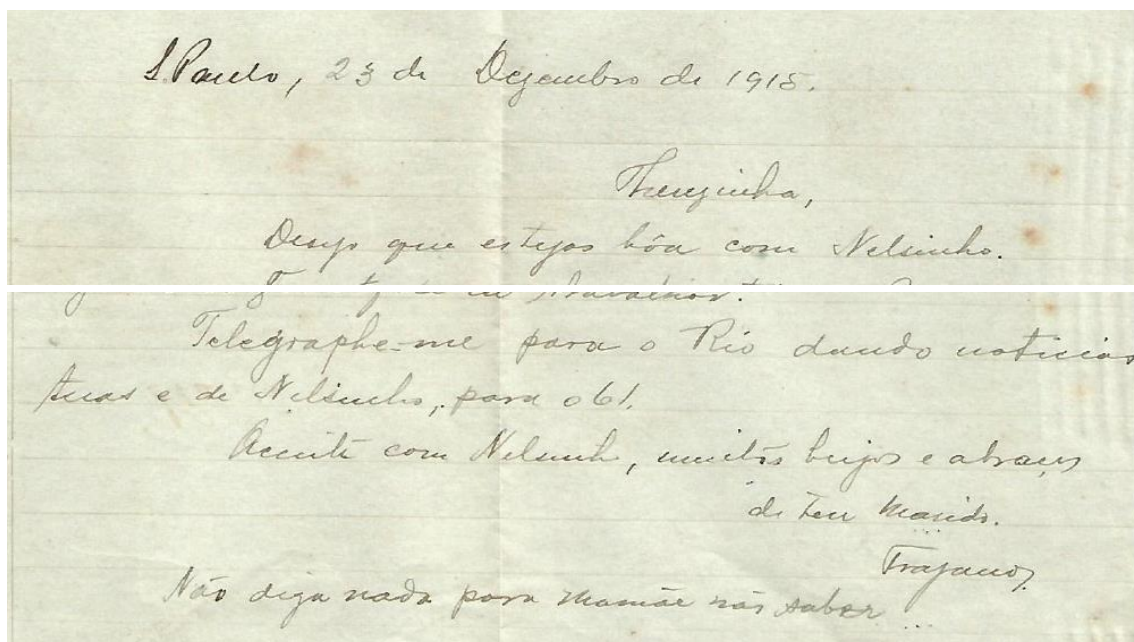 S. Paulo, 23 de Dezembro de 1915.
Thuzinha,
Desejo que estejas bôa com Nelsinho.
trabalhar.
Telegraphe-me para o Rio dando noticias
tuas e de Nelsinho, para o 61.
Acceite com Nelsinho, muitos beijos e abraços
de teu marido.
Trajano
Não diga nada para Mamãe não saber...